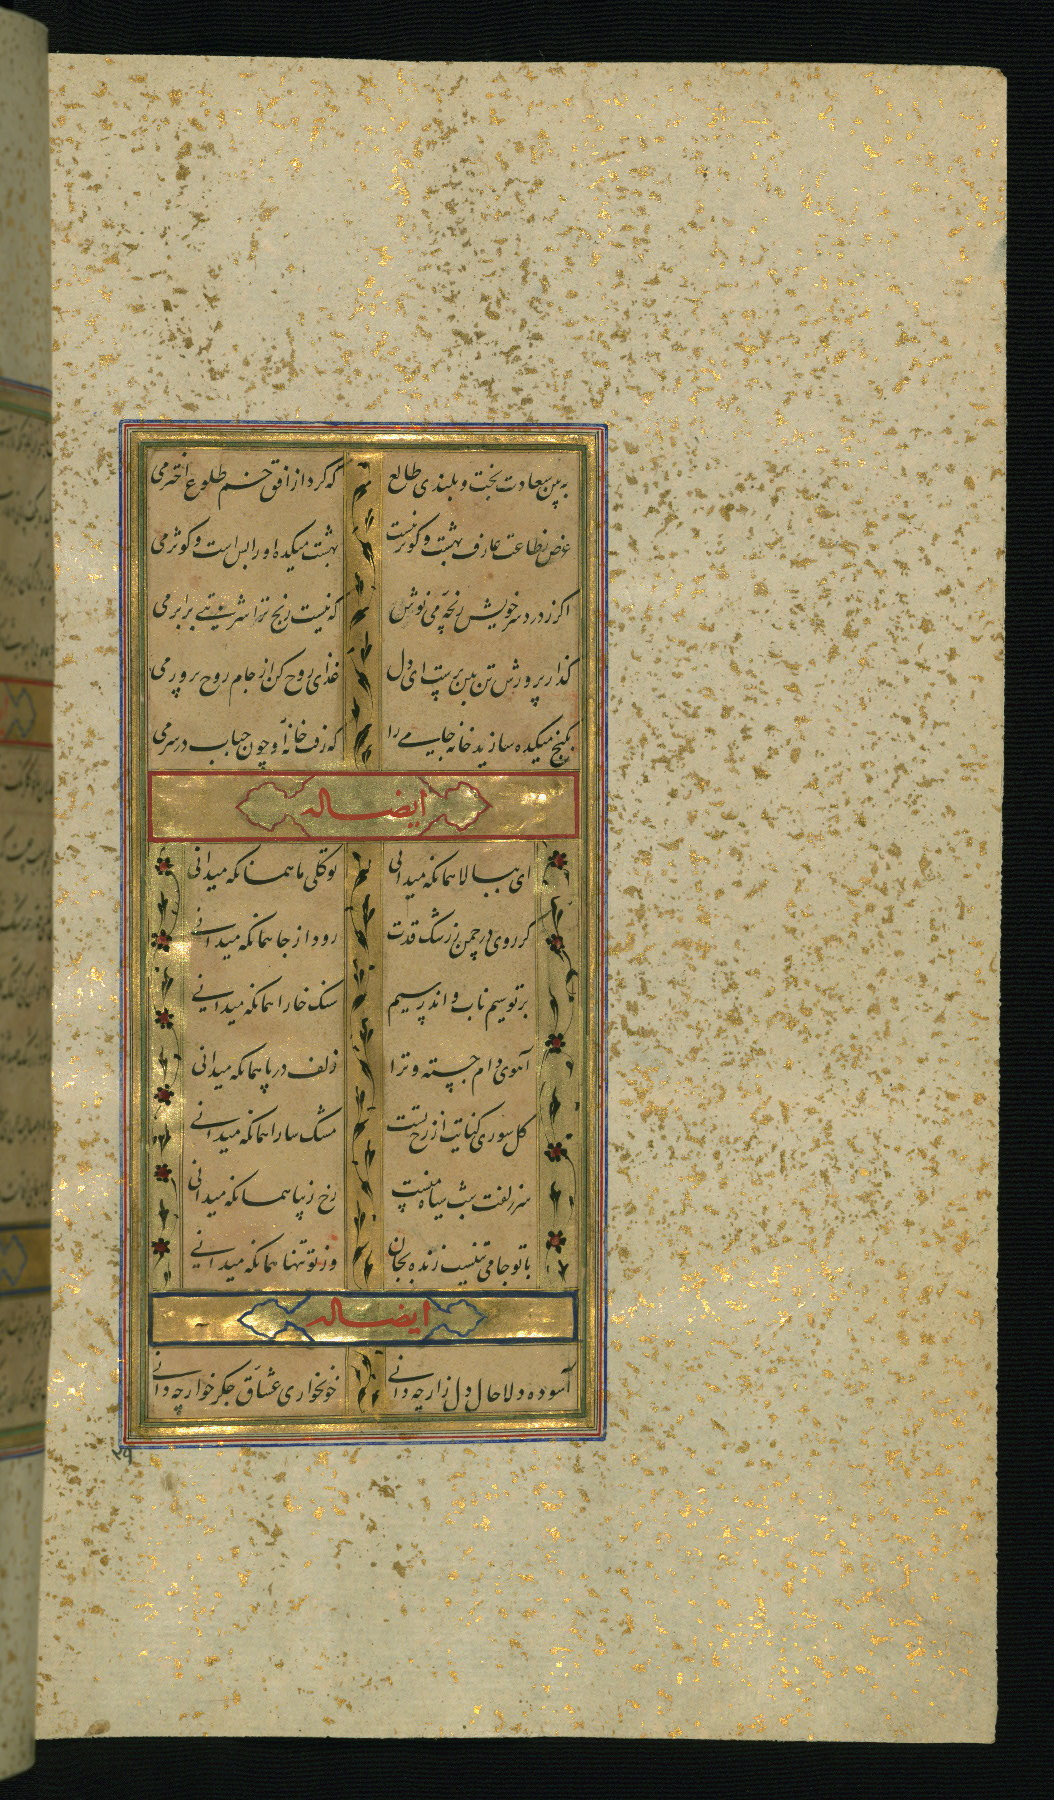 به بین سعادت بخت و بلندی طالع که کرد از افق خم طلوع اختر می
غرض ز طاعت عارف بهشت و کوثر نیست بهشت میکده او را بس است و کوثر می
اکر ز درد سر خویش رنجهٔ می نوش که نیست رنج ترا شربتی برابر می
کذار پرورش تن ببین بپرست ای دل غذای روح کن از جام روح پرور می
بکنج میکده سازید خانه جامی را که رفت خانهٔ او چون حباب در سر می
ایضا له
ای ببالا همانکه میدانی تو کلی ما همانکه میدانی
کر روی در چمن ز رشک قدت رود از جا همانکه میدانی
بر تو سیم ناب و اندر سیم سنک خارا همانکه میدانی
آهوی دام جسته و ترا زلف در پا همانکه میدانی
کل سوری کنایت از رخ تست مشک سارا همانکه میدانی
سر زلفت شب سیاه منست رخ زیبا همانکه میدانی
با تو جامی نیست زنده بجان وز تو تنها همانکه میدانی
ایضا له
آسوده دلا حال دل زار چه دانی خونخواری عشاق جکر خوار چه دانی
۲۹